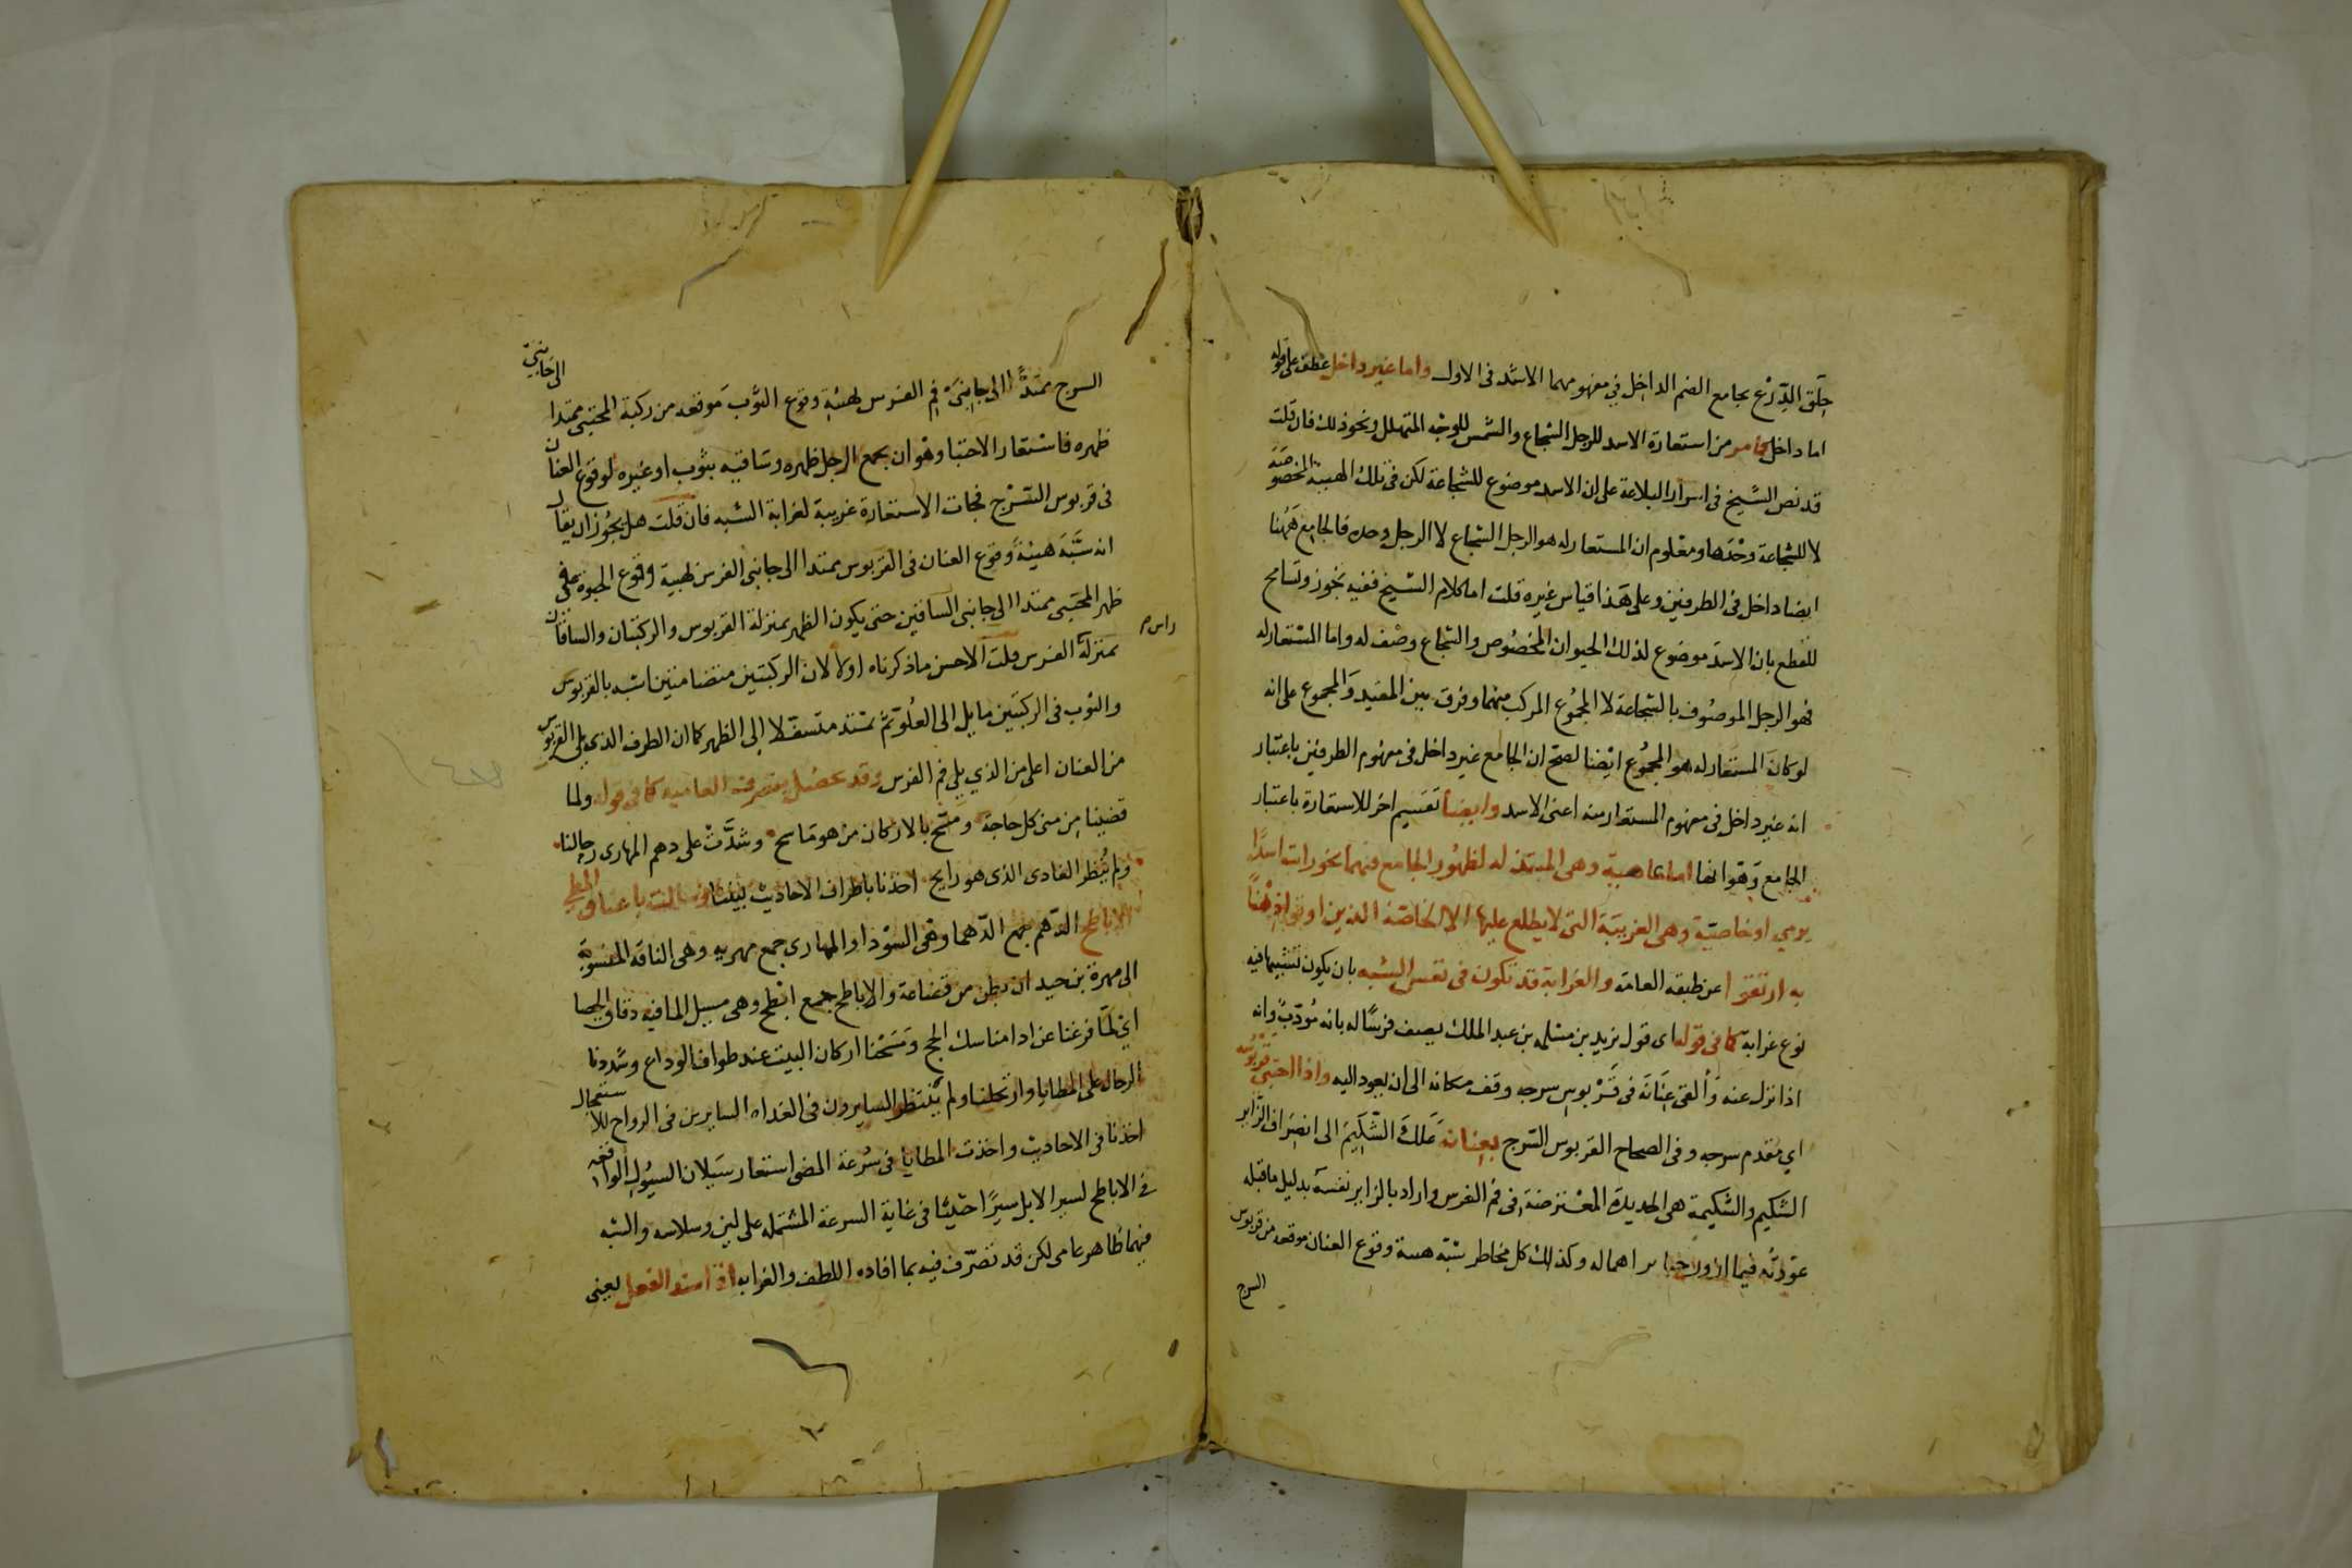 حلق الدرع بجامع الضم الداخل في مفهومهما الاشد في الاول واما غير داخل عطف على قوله
اما داخل كما مر من استعارة الاسد للرجل الشجاع والشمس للوجه المتهلل ونحو ذلك فان قلت
قد نص الشيخ في اسرار البلاغة على ان الاسد موضوع للشجاعة لكن في تلك الهيئة المخصوصة
لا للشجاعة وحدها ومعلوم ان المستعار له هو الرجل الشجاع لا الرجل وحده فالجامع ههنا
ايضا داخل في الطرفين وعلى هذا قياس غيره قلت اما كلام الشيخ ففيه تجوز وتسامح
للقطع بان الاسد موضوع لذلك الحيوان المخصوص والشجاع وصف له واما المستعار له
فهو الرجل الموصوف بالشجاعة لا المجموع المركب منهما وفرق بين المقيد والمجموع على انه
لو كان المستعار له هو المجموع ايضا لصح ان الجامع غير داخل في مفهوم الطرفين باعتبار
انه غير داخل في مفهوم المستعار منه اعني الاسد وايضا تقسيم اخر للاستعارة باعتبار
الجامع وهو انها اما عامية وهي المبتذلة لظهور الجامع فيهما نحو رايت اسدا
يرمي او خاصية وهي الغريبة التي لا يطلع عليها الا الخاصة الذين اوتوا ذهنا
به ارتفعوا عن طبقة العامة والغرابة قد تكون في نفس الشبه بان يكون تشبيها فيه
نوع غرابة كما في قوله اى قول يزيد بن مسلمه بن عبد الملك يصف فرسا له بانه مؤدب وانه
اذا نزل عنه وألقى عنانه في قربوس سرجه وقف مكانه الى ان يعود اليه واذا احتبى قربوسه
اي مقدم سرجه وفي الصحاح القربوس السرج بعنانه علك الشكيم الى انصراف الزاير
الشكيم والشكيمة هي الحديدة المعترضة في فم الفرس واراد بالزاير نفسه بدليل ما قبله
عودته فيما ازور حبايبى اهماله وكذلك كل مخاطر شبه هيئة وقوع العنان موقعه من قربوس
السرج
السرج ممتدا الى جانبي فم الفرس بهيئة وقوع الثوب موقعه من ركبة المحتبي ممتدا الى جانبي
ظهره فاستعار الاحتبا وهو ان يجمع الرجل ظهره وساقيه بثوب او غيره لوقوع العنان
في قربوس السرج فجات الاستعارة غريبة لغرابة الشبه فان قلت هل يجوز ان يقال
انه شبه هيئة وقوع العنان في القربوس ممتدا الى جانبي الفرس بهيئة وقوع الحبوة على
ظهر المحتبي ممتدا الى جانبي الساقين حتى يكون الظهر بمنزلة القربوس والركبتان والساقان
راس م
بمنزلة الفرس قلت الاحسن ما ذكرناه اولا لان الركبتين متضامتين اشبه بالقربوس
والثوب في الركبتين مايل الى العلو ثم تستد متسفلا إلى الظهر كما ان الطرف الذي يلي القربوس
من العنان اعلى من الذي يلي فم الفرس وقد تحصل بتصرف في العامية كما في قوله ولما
قضينا من منى كل حاجة ومسح بالاركان من هو ماسح وشدت على دهم المهارى رحالنا
ولم ينظر الغادى الذى هو رايح اخذنا باطراف الاحاديث بيننا وسالت باعناق المطي
الاباطح الدهم جمع الدهما وهى السودا والمهارى جمع مهريه وهى الناقة المنسوبة
الى مهرة بن حيدان بطن من قضاعة والاباطح جمع ابطح وهى مسيل الما فيه دقاق الحصا
اي لما فرغنا عن ادا مناسك الحج ومسحنا اركان البيت عند طواف الوداع وشددنا
الرحال على المطايا وارتحلنا ولم ينتظر السايرون في الغداه السايرين في الرواح للاستعجال
اخذنا في الاحاديث واخذت المطايا في سرعة المضى استعار سيلان السيول الواقعه
في الاباطح لسير الابل سيرا حثيثا في غاية السرعة المشتملة على لين وسلاسه والشبه
فيهما ظاهر عامى لكن قد تصرف فيه بما افاده اللطف والغرابه اذ اسند الفعل يعني